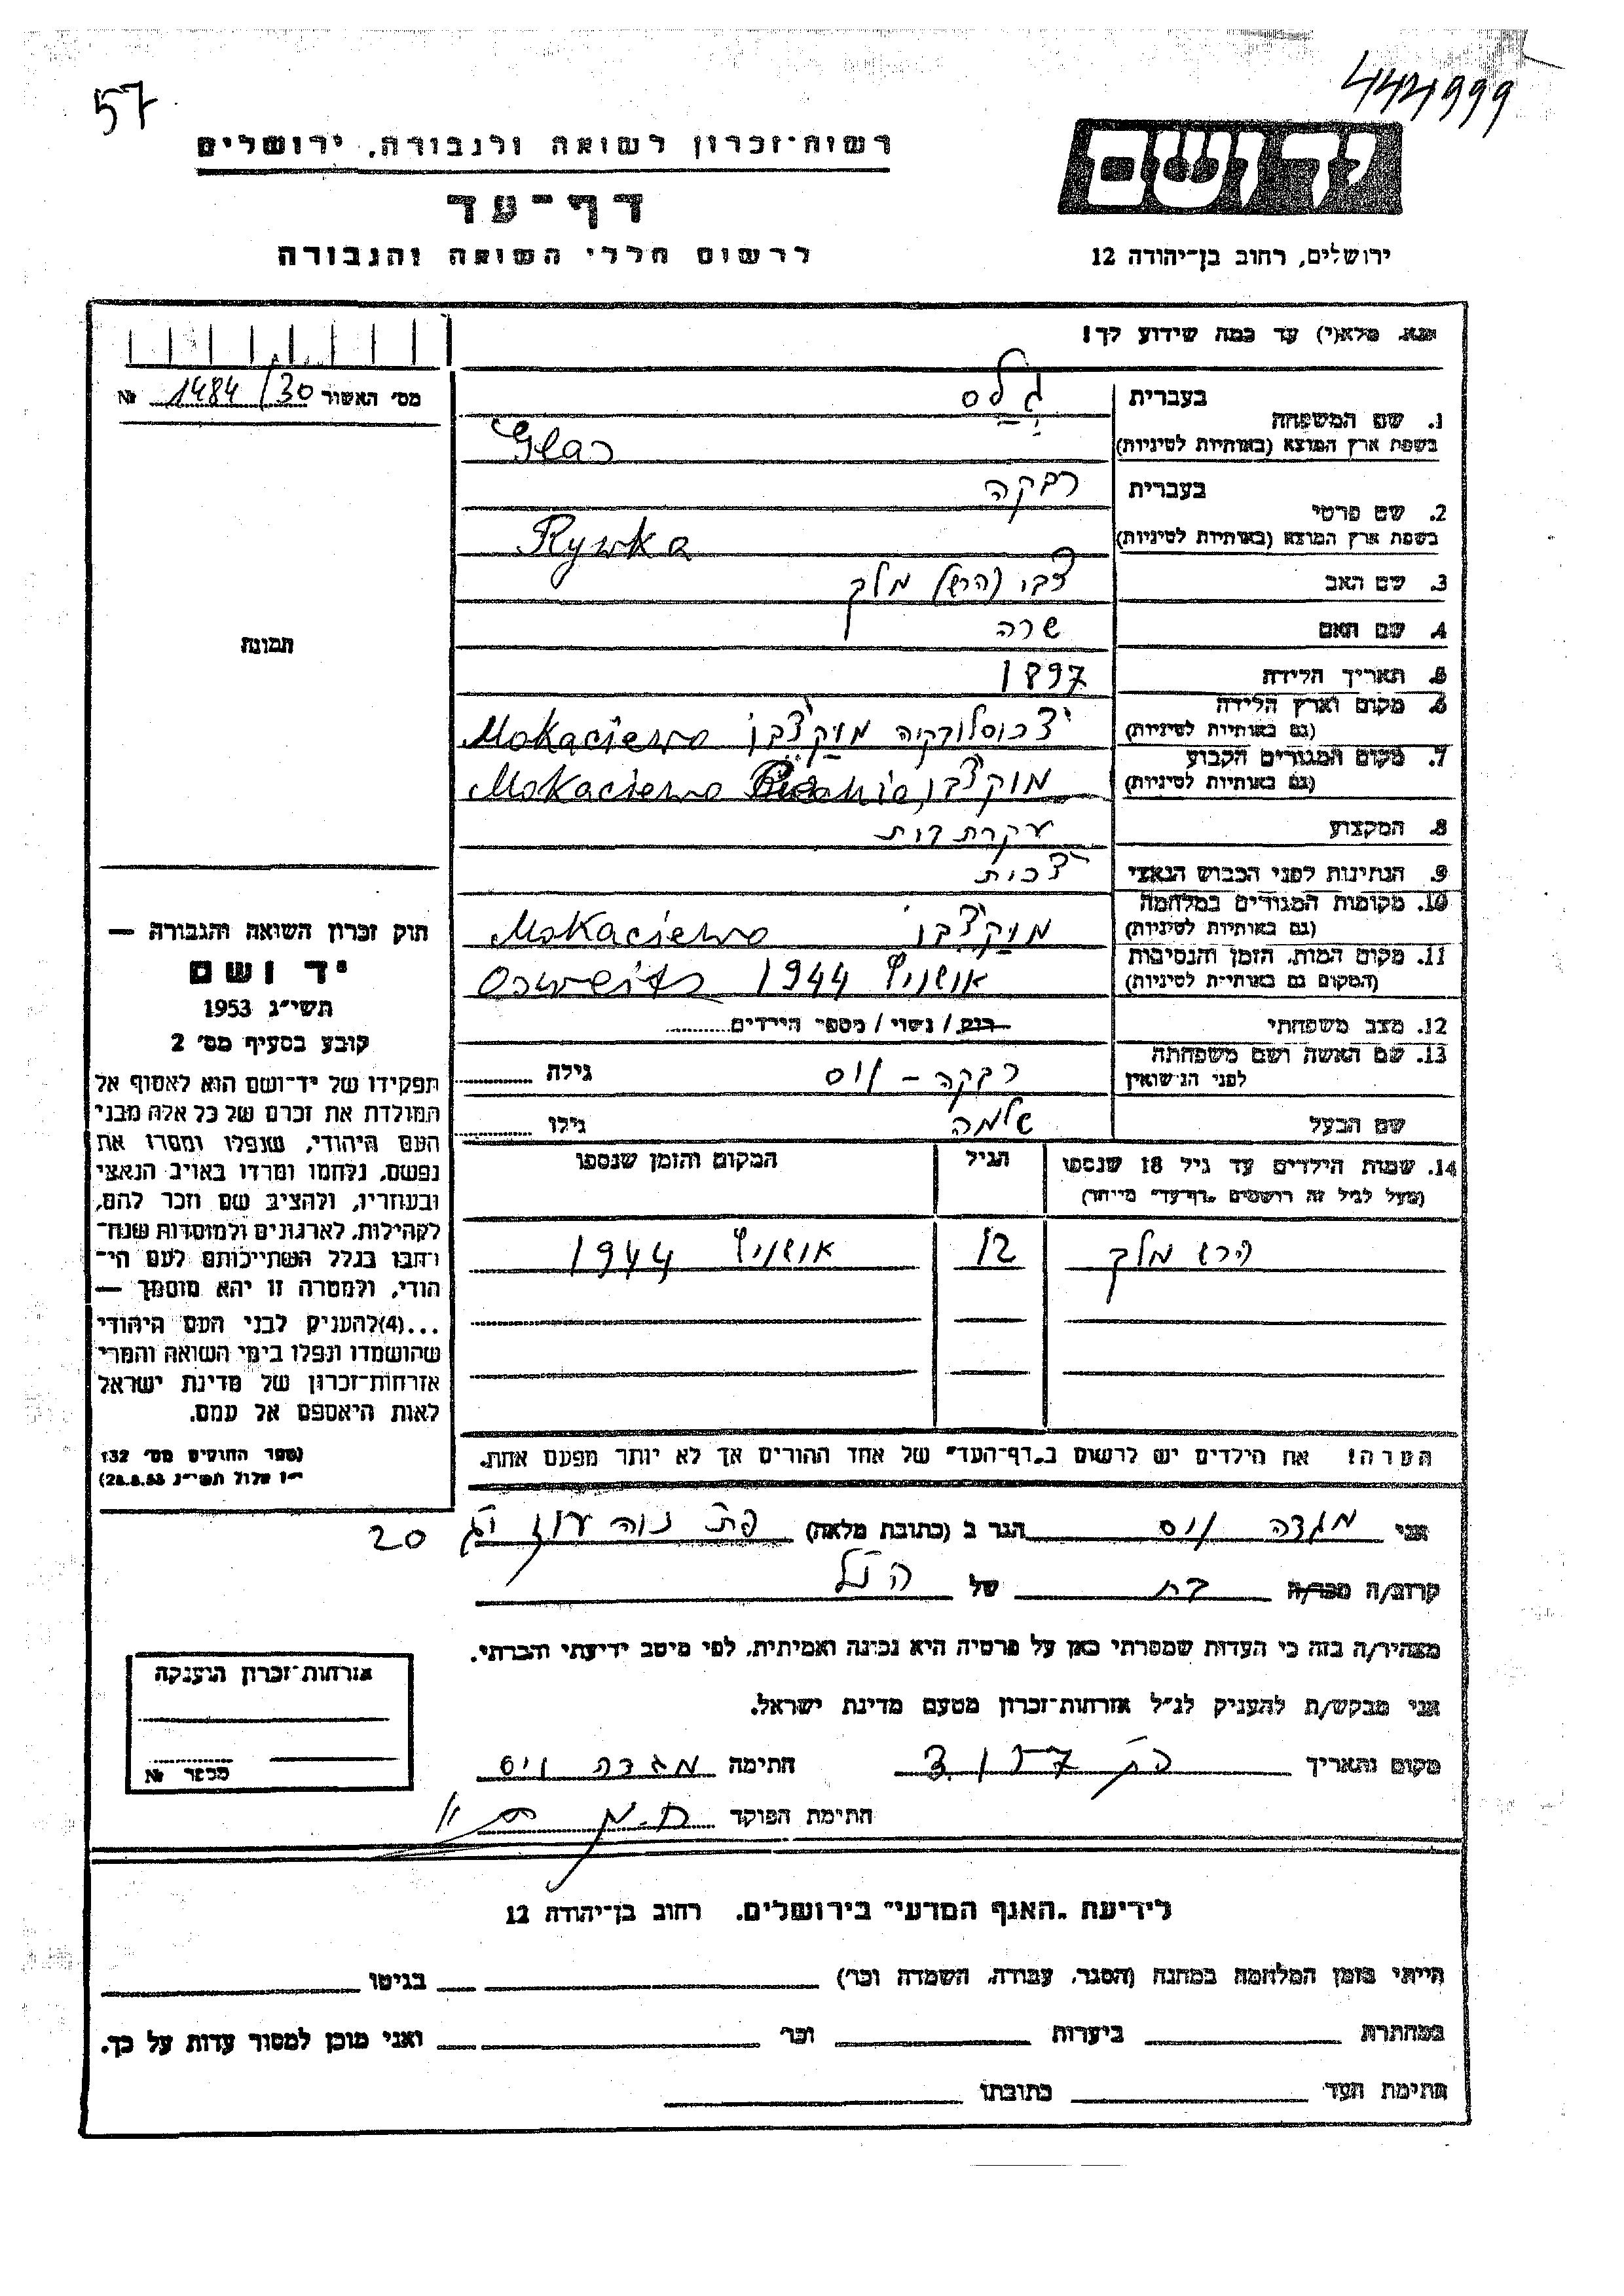 57
444999
רשות-זכרון לשואה ולגבורה, ירושלים
יד ושם
דף-עד
לרשום חללי השואה והגבורה
ירושלים, רחוב בן-יהודה 12
נא מלא(י) עד כמה שידוע לך!
מס׳ האשור 1484/30 №
1. שם המשפחה
בעברית
גלס
בשפת ארץ המוצא (באותיות לטיניות)
Glas
2. שם פרטי
בעברית
רבקה
בשפת ארץ המוצא (באותיות לטיניות)
Rywka
3. שם האב צבי (הרש) מלך
4. שם האם שרה
5. תאריך הלידה 1897
6. מקום וארץ הלידה
(גם באותיות לטיניות)
צ׳כוסלובקיה מוקצ׳בו Mokaciewo
7. מקום המגורים הקבוע
(גם באותיות לטיניות)
מוקצ׳בו, Mokaciewo
8. המקצוע עקרת בית
9. הנתינות לפני הכבוש הנאצי צ׳כית
10. מקומות המגורים במלחמה
(גם באותיות לטיניות)
מוקצ׳בו Mokaciewo
11. מקום המות, הזמן והנסיבות
(המקום גם באותיות לטיניות)
אושויץ 1944 Osweits
12. מצב משפחתי רווק / נשוי / מספר הילדים
13. שם האשה ושם משפחתה
לפני הנישואין
רבקה - ויס גילה
שם הבעל שלמה גילו
14. שמות הילדים עד גיל 18 שנספו הגיל המקום והזמן שנספו
(מעל לגיל זה רושמים „דף-עד״ מיוחד)
הרש מלך 12 אושויץ 1944
הערה! את הילדים יש לרשום ב„דף-העד״ של אחד ההורים אך לא יותר מפעם אחת.
תמונה
חוק זכרון השואה והגבורה —
יד ושם
תשי״ג 1953
קובע בסעיף מס׳ 2
תפקידו של יד-ושם הוא לאסוף אל
המולדת את זכרם של כל אלה מבני
העם היהודי, שנפלו ומסרו את
נפשם, נלחמו ומרדו באויב הנאצי
ובעוזריו, ולהציב שם וזכר להם,
לקהילות, לארגונים ולמוסדות שנח־
רחבו בגלל השתייכותם לעם הי־
הודי, ולמטרה זו יהא מוסמך —
...(4)להעניק לבני העם היהודי
שהושמדו ונפלו בימי השואה והמרי
אזרחות-זכרון של מדינת ישראל
לאות היאספם אל עמם.
(ספר החוקים מס׳ 132
י״ז אלול תשי״ג 28.8.53)
אני מגדה ויס הגר ב (כתובת מלאה) פת נוה עוז יג 20
קרוב/ה מכר/ה בת של הנ״ל
מצהיר/ה בזה כי העדות שמסרתי כאן על פרטיה היא נכונה ואמיתית, לפי מיטב ידיעתי והכרתי.
אני מבקש/ת להעניק לנ״ל אזרחות-זכרון מטעם מדינת ישראל.
מקום ותאריך חתימה מגדה ויס
חתימת הפוקד
אזרחות-זכרון הוענקה
מספר №
לידיעת „האגף המדעי״ בירושלים, רחוב בן-יהודה 12
הייתי בזמן המלחמה במחנה (הסגר, עבודה, השמדה וכו׳) בגיטו
במחתרת ביערות וכו׳ ואני מוכן למסור עדות על כך.
חתימת העד כתובתו